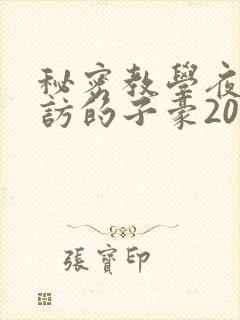 秘密教學夜
訪的子豪20
張寶印